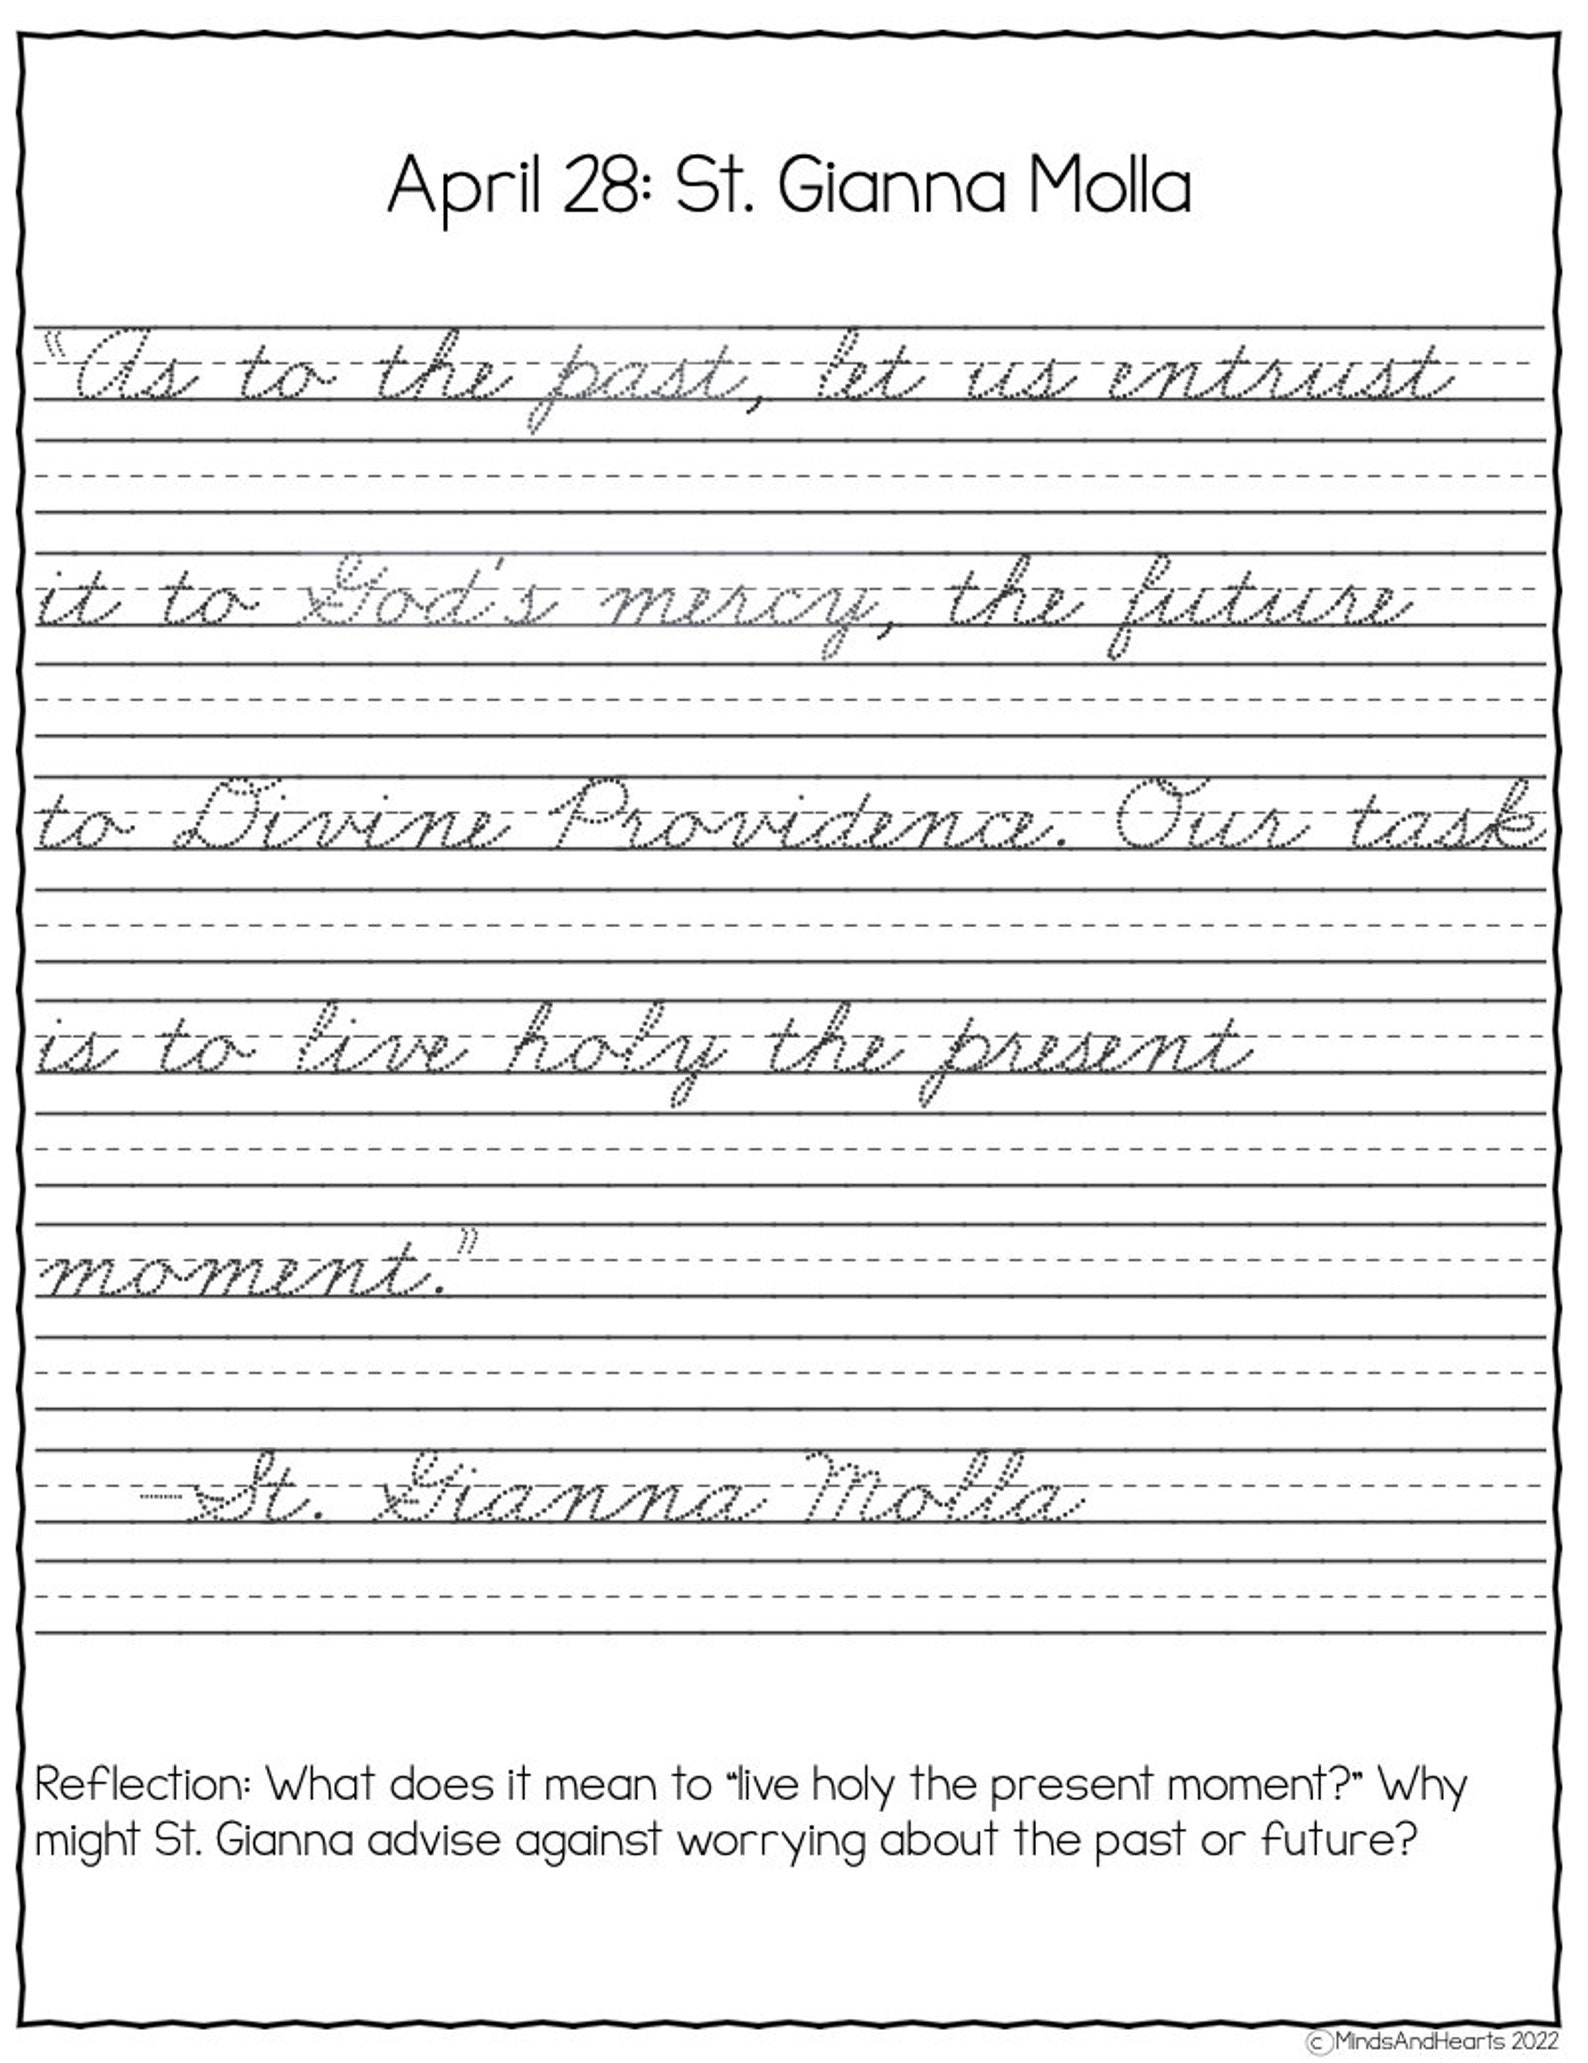 April 28: St. Gianna Molla
“As to the past, let us entrust
it to God's mercy, the future
to Divine Providence. Our task
is to live holy the present
moment.”
—St. Gianna Molla
Reflection: What does it mean to “live holy the present moment?” Why
might St. Gianna advise against worrying about the past or future?
©MindsAndHearts 2022